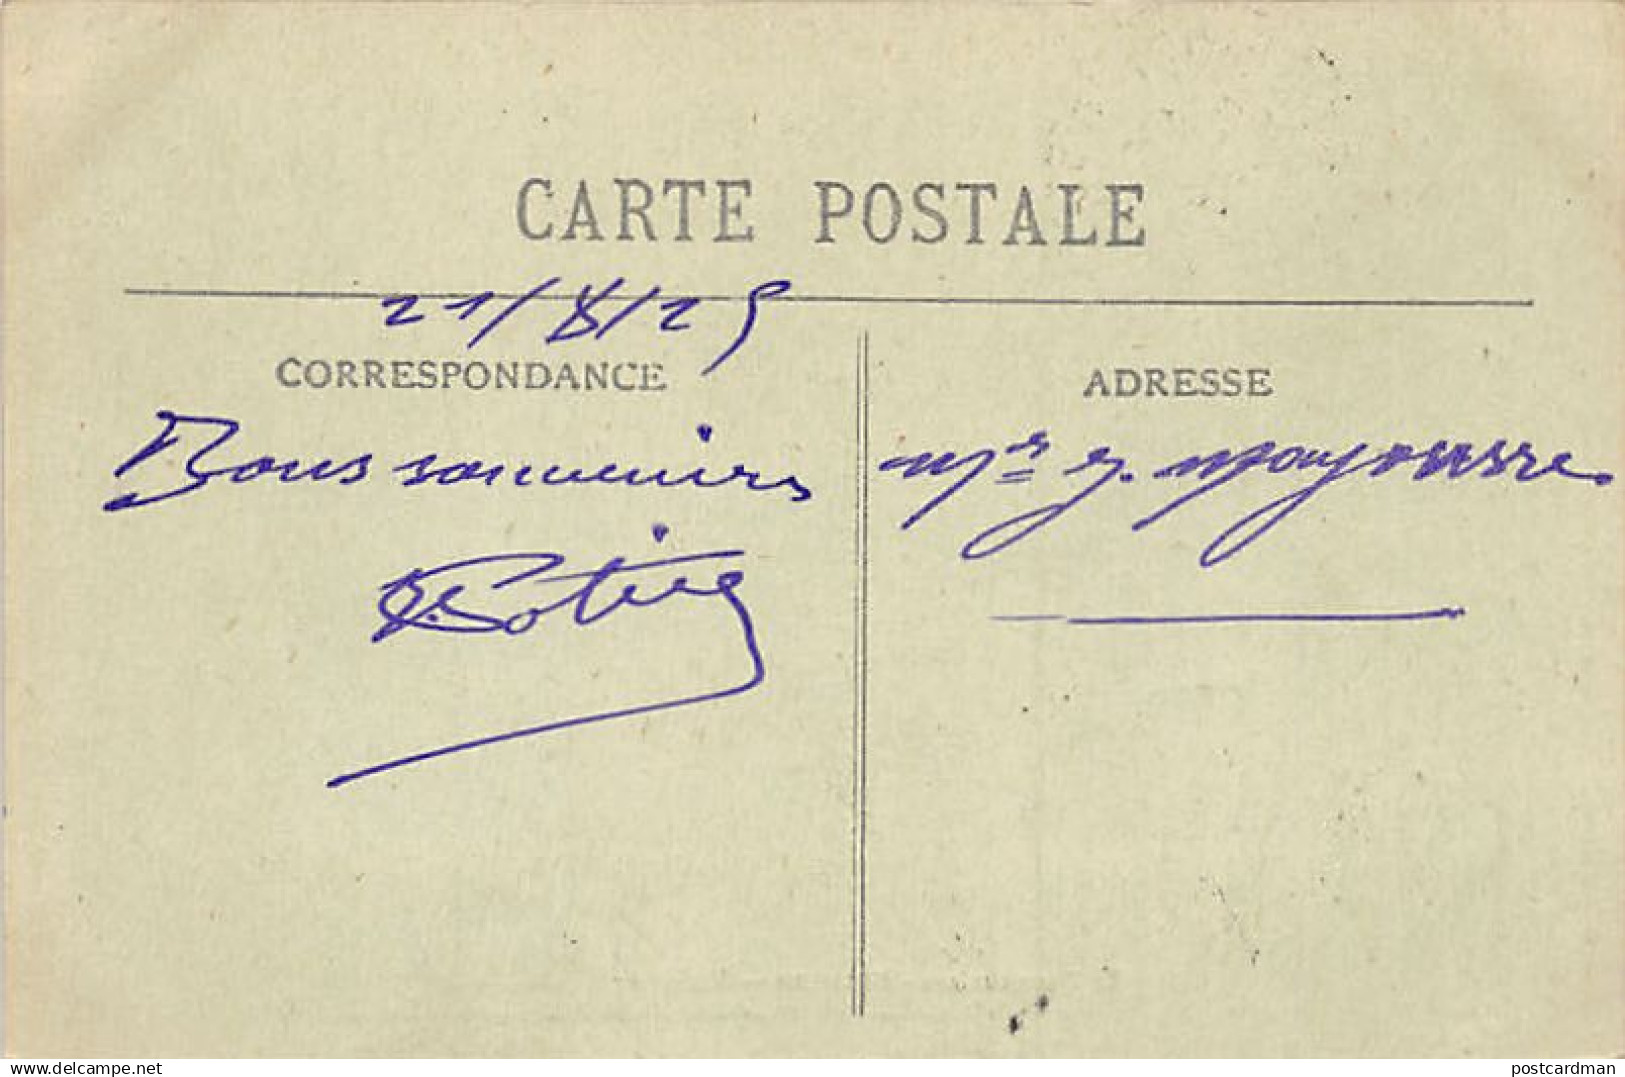 CARTE POSTALE
21/8/25
CORRESPONDANCE
Bons souvenirs
ADRESSE
Mr J. Mayousse
delcampe.net
postcardman